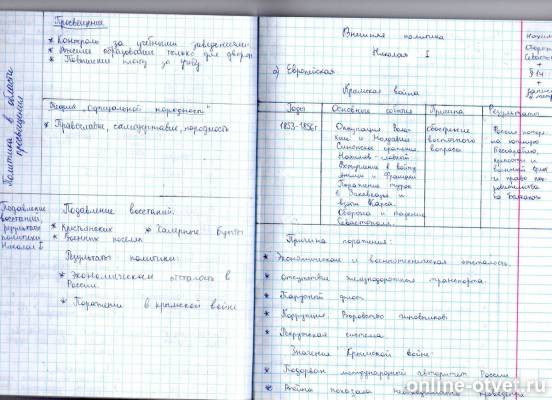 Просвещение
* Контроль за учебными заведениями
* Высшее образование только для дворян
* Повышен плату за учёбу
Политика в области
просвещения
Теория „Официальной народности"
* Православие, самодержавие, народность
Подавление
восстаний,
результаты
политики
Николая I
Подавление восстаний:
* Крестьянских
* Холерные бунты
* Военных поселен
Результаты политики:
* Экономическая отсталость в
России
* Поражение в крымской войне
Внешняя политика
Николая I
а) Европейская
Крымская война
Годы
Основные события
Причина
Результаты
1853-1856г
Оккупация Вала-
хии и Молдавии
Синопское сражение
Нахимов-главной
Вступление в войну
Англии и Франции
Поражение турок
в Закавказье и
взяти Карса
Оборона и падение
Севастополя.
обострение
восточного
вопроса
Россия потер.
на южную
Бессарабию,
крепости и
военный флот
и право пок
ровительства
на Балканах
§ 14
+
Причина поражения:
* Экономическая и военнотехническая отсталость.
* Отсутствие железнодорожного транспорта.
* Парусный флот
* Коррупция Воровство чиновников
* Рекрутская система
Значение Крымской войне:
* Подорван международной авторитет России
* Война показала необходимость проведения
online-otvet.ru